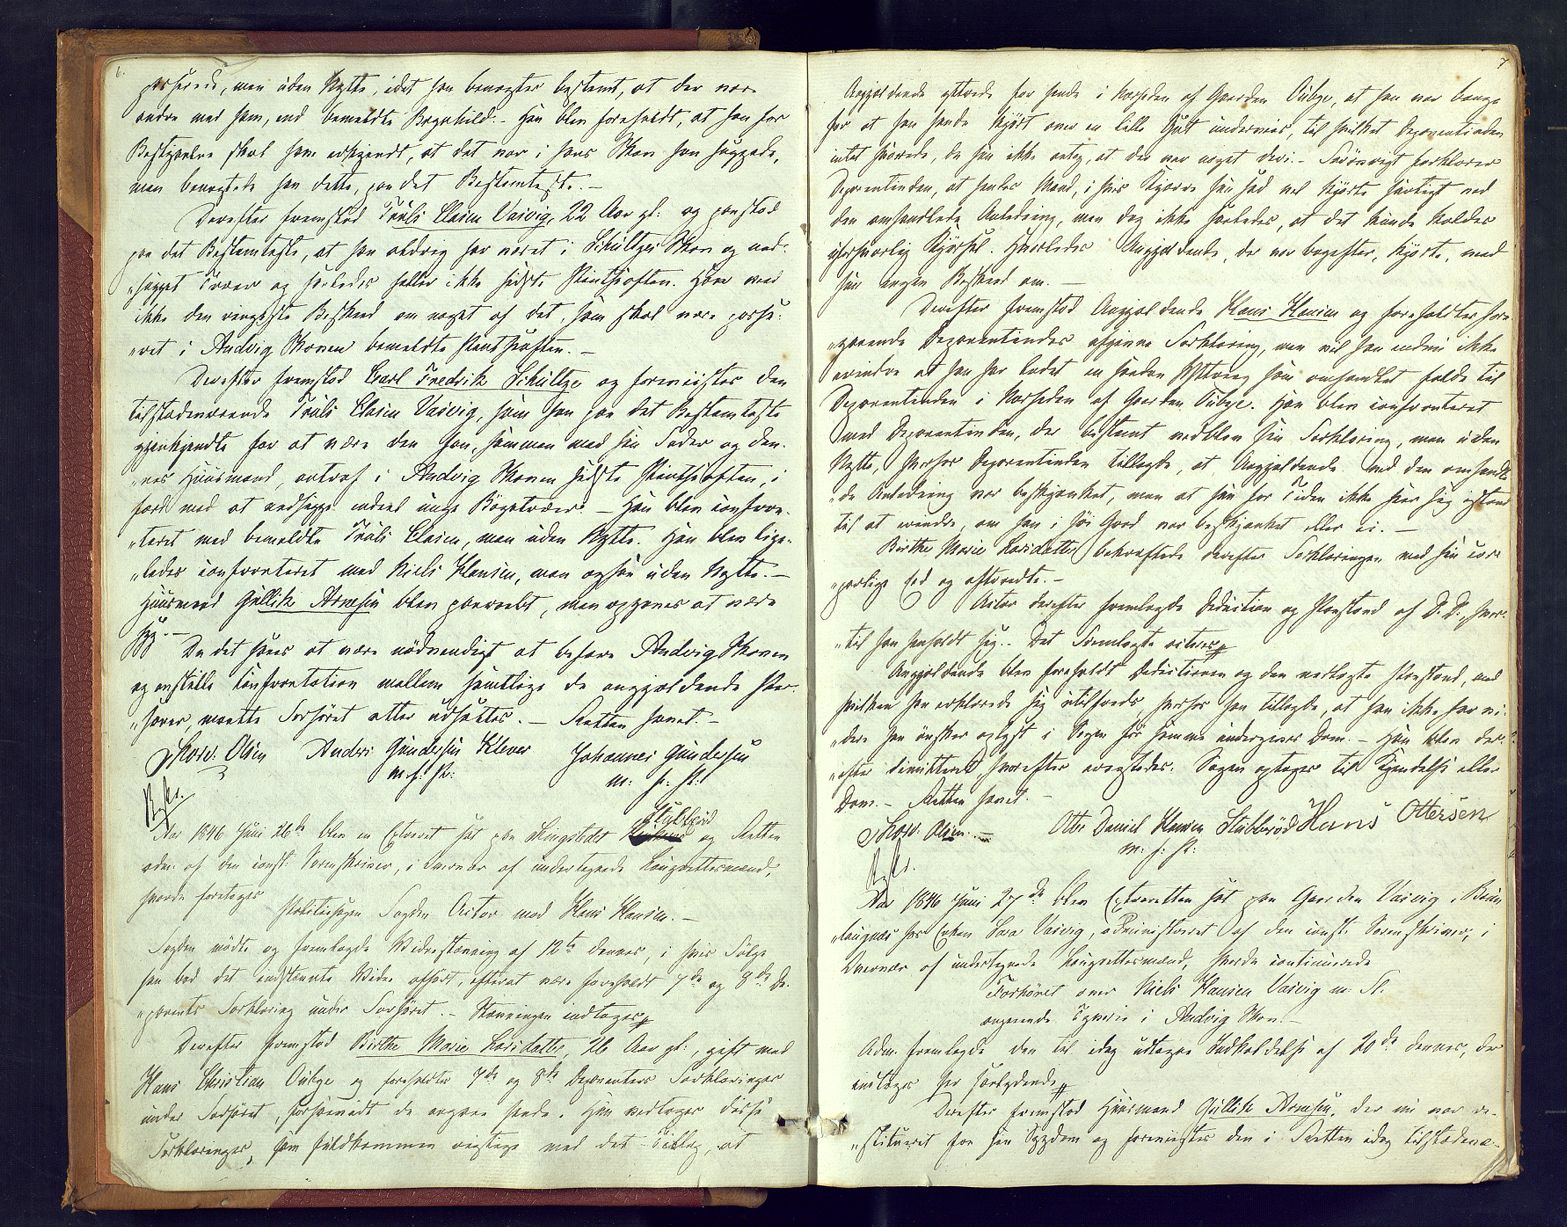 6.
passerede, men uden Nytte, idet han benægter bestemt, at der var
andre med ham, end bemeldte Bøgehuld.- Han blev foreholdt, at han for
Betjenten skal have udsigendt, at det var i hans Skov han huggede,
men benegtede han dette, paa det Bestemteste.-
Derefter fremstod Truls Clasen Vasvig, 22 Aar gl. og paastod
paa det Bestemteste, at han aldrig har været i Schultzes Skov og ned-
"hugget Træer og saaledes heller ikke sidste Skudthoften. Han veed
ikke den ringeste Besked om noget af det, som skal være passe-
"ret i Andvig Skoven bemeldte
Derefter fremstod Carl Fredrik Schultze og foreviistes den
tilstedeværende Truls Clasen Vasvig, som han paa det Bestemteste
gjenkjendte for at være den han, sammen med sin Fader og den-
"nes Huusmand, antraf i Andvig Skoven sidste
færd med at nedhugge endeel unge Bøgetræer.- Han blev confron-
"teret med bemeldte Truls Clasen, men uden Nytte. Han blev lige-
"ledes confronteret med Niels Hansen, men ogsaa uden Nytte.-
Huusmand Gullik Arnesen blev paaraabt, men opgaves at være
syg.-
Da det synes at være nødvendigt at befare Andvig Skoven
og anstille Confrontation mellem samtlige de angjældende Per-
"soner, maatte Forhøret atter udsættes.- Retten hævet.-
Skow. Olsen Anders Gundersen Klever Johannes Gundersen
m. f. P. m. f. P.
Aar 1846 Juni 26de blev en Extraret sat paa Stubberød og Retten
adm. af den const. Sorenskriver, i Nærvær af undertegnede Laugrettesmænd,
hvorda foretoges Politiesagen Sagden Actor mod Hans Hansen.-
Sagden mødte og fremlagde Vidnestævning af 12te dennes, i hvis Følge
han bad det indstævnte Vidne afhørt, efterat være foreholdt 7de og 8de De-
"ponents Forklaring under Forhøret.- Stævningen indtages
Derefter fremstod Birthe Marie Larsdatter, 26 Aar gl., gift med
Hans Christian Aubye og foreholdtes 7de og 8de Deponenters Forklaringer
under Forhøret, forsaavidt de angaae hende. Hun vedtager disse
Forklaringer, som fuldkommen rigtige med det Tillæg, at
7
Angjældende yttrede for hende i Nærheden af Gaarden Aubye, at han var bange
for at han havde kjørt over en lille Gut underveis, til hvilket Deponentinden
intet svarede, da hun ikke antog, at der var noget deri.- Forøvrigt forklarer
Deponentinden, at hendes Mand, i hvis Kjærre hun sad vel kjørte hurtigt ved
den omhandlede Anledning, men dog ikke saaledes, at det kunde kaldes
uforsvarlig Kjørsel. Hvorledes Angjældende, der var bagefter, kjørte, veed
hun ingen Besked om.-
Derefter fremstod Angjældende Hans Hansen og foreholdtes fore-
"gaaende Deponentindes afgivne Forklaring, men vil han endnu ikke
erindre at han har ladet en saadan Yttring som omhandlet falde til
Deponentinden i Nærheden af Gaarden Aubye. Han blev confronteret
med Deponentinden, der bestemt vedblev sin Forklaring, men uden
Nytte, hvorfor Deponentinden tillagde, at Angjældende ved den omhandle-
"de Anledning var beskjænket, men at hun for Tiden ikke seer sig istand
til at erindre, om han i høi Grad var beskjænket eller ei.-
Birthe Marie Larsdatter bekræftede derefter Forklaringen med sin cor-
"porlige Eed og aftraadte.-
Actor derefter fremlagde Deduction og Paastand af D. D., hvor-
"til han henholdt sig.- Det Fremlagte acteres
Angjældende blev foreholdt Deductionen og den nedlagte Paastand, med
hvilken han erklærede sig utilfreds, hvorfor han tillagde, at han ikke har vi-
"dere han ønsker oplyst i Sagen før samme undergiver Dom.- Han blev der-
"efter dimitteret, hvorefter eragtedes: Sagen optages til Kjendelse eller
Dom.- Retten hævet.-
Skow. Olsen.- Otto Daniel Hansen Stubberød Hans Ottersen
m. f. P.
Aar 1846 Juni 27de blev Extraretten sat paa Gaarden Vasvig i Brun-
"laugnæs hos Enken Sara Vasvig, administreret af den const. Sorenskriver, i
Nærvær af undertegnede Laugrettesmænd, hvorda continuerede
Forhøret over Niels Hansen Vasvig m. Fl.
angaaende Tyverie i Andvig Skov.-
Adm. fremlagde den til idag udtagne Indkaldelse af 20de dennes, der
indtages her saalydende
Derefter fremstod Huusmand Gullik Arnesen, der nu var re-
"stitueret for sin Sygdom og foreviistes den i Retten idag tilstedevæ-